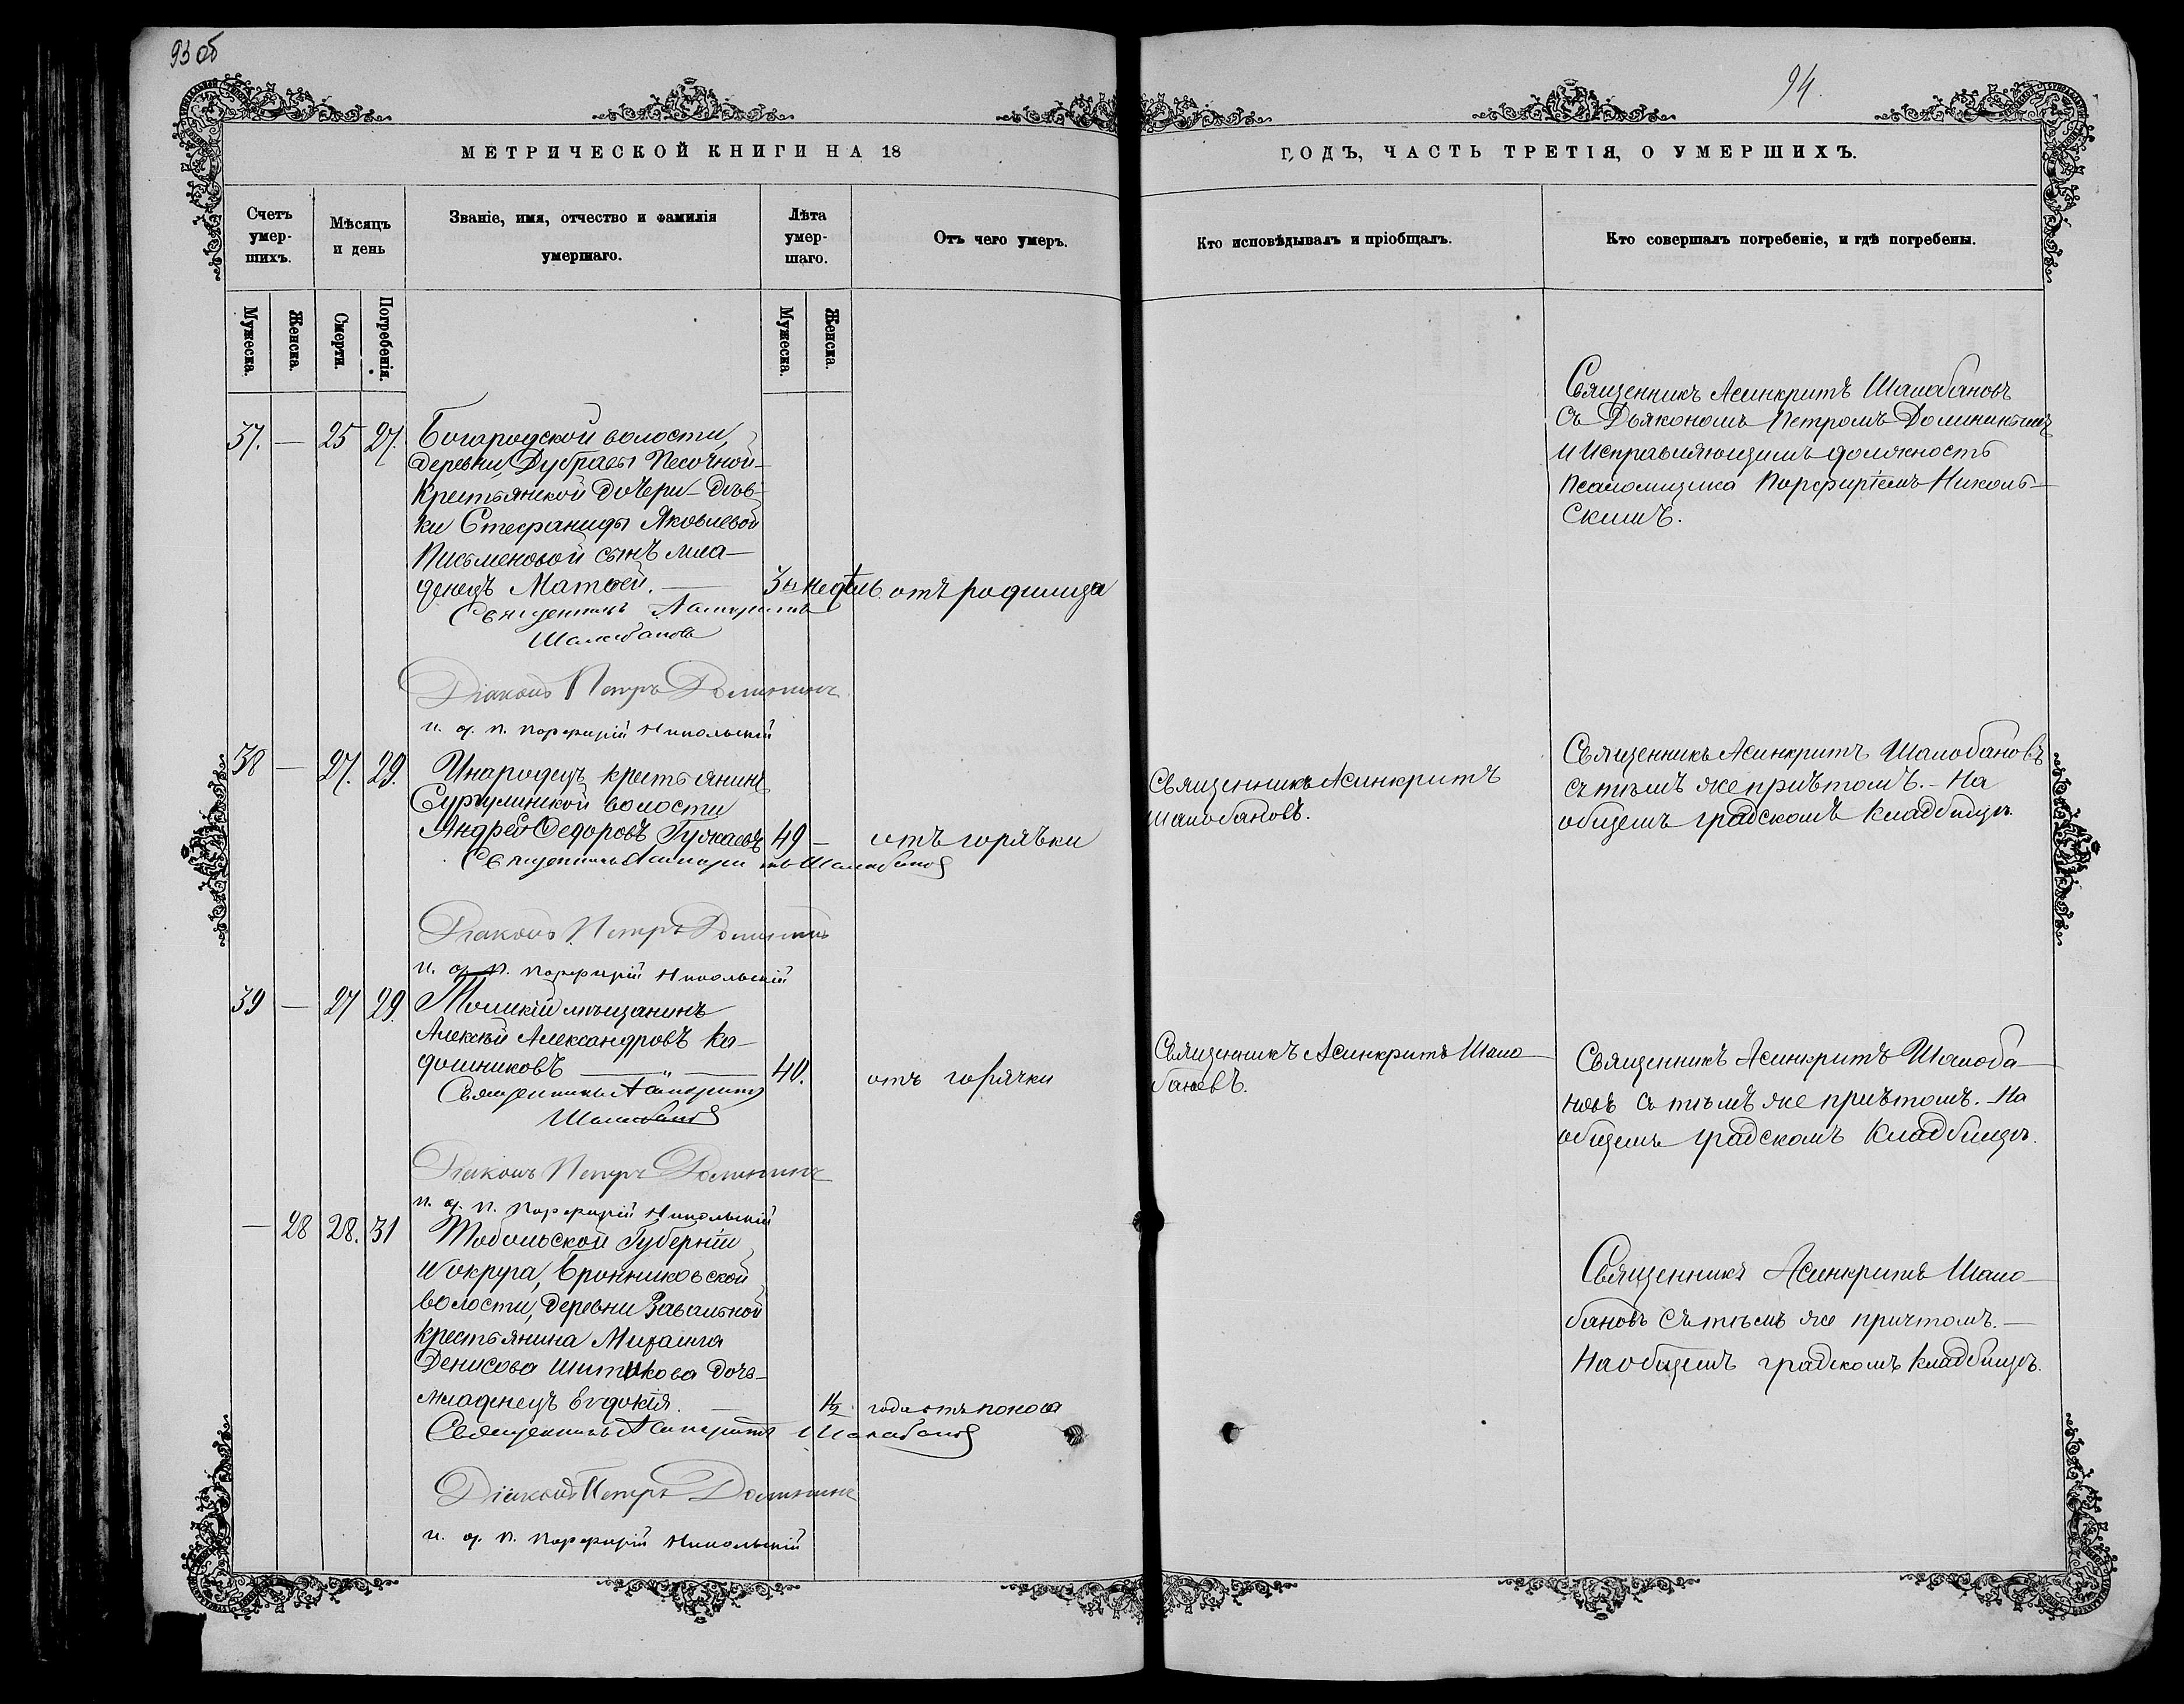 93 об
94.
МЕТРИЧЕСКОЙ КНИГИ НА 18
ГОДЪ, ЧАСТЬ ТРЕТІЯ, О УМЕРШИХЪ.
Счетъ умер-шихъ.
Мѣсяцъ и день
Званіе, имя, отчество и фамилія умершаго.
Лѣта умер-шаго.
Отъ чего умеръ.
Кто исповѣдывалъ и пріобщалъ.
Кто совершалъ погребеніе, и гдѣ погребены.
Мужеска.
Женска.
Смерти.
Погребенія.
Мужеска.
Женска.
37. — 25 27.
Богародской волости,
деревни, Дубравы Песочной
Крестьянской дочери – дѣв-
ки Стефаниды Яковлевой
Письменовой сынъ мла-
денецъ Матвей. — 3х недѣль. отъ родимца
Священникъ Асинкритъ
Шалобановъ
Діаконъ Петръ Домининъ
и. д. п. Порфирій Никольскій
Священникъ Асинкритъ Шалабановъ
Съ Дьякономъ Петромъ Доминины
и исправляющимъ должность
псаломщика Порфиріемъ Николь-
скимъ.
38 — 27. 29.
Инародецъ крестьянинъ
волости
Андрей Федоровъ 49 — отъ горячки
Священникъ Асинкритъ Шалабановъ
Діаконъ Петръ Доминин
и. д. п. Порфирій Никольскій
Священникъ Асинкритъ
Шалобановъ.
Священникъ Асинкритъ Шалобановъ
съ тѣмъ же причтомъ. – На
общемъ градскомъ кладбищѣ.
39 — 27 29.
Томскій мѣщанинъ
Алексѣй Александровъ Ка-
дошниковъ — „ — 40. отъ горячки
Священникъ Асинкритъ
Шалобановъ
Діаконъ Петръ Доминин
и. д. п. Порфирій Никольскій
Священникъ Асинкритъ Шало-
бановъ.
Священникъ Асинкритъ Шалоба-
новъ съ тѣмъ же причтомъ. На
общемъ градскомъ кладбищѣ.
— 28 28. 31
Тобольской Губерніи
и округа, Бронниковской
волости, деревни Завальной
крестьянина Михаила
Денисова Шитикова дочь
младенецъ Евдокія. — 1½ года отъ поноса
Священникъ Асинкритъ Шалабановъ
Діаконъ Петръ Доминин
и. д. п. Порфирій Никольскій
Священникъ Асинкритъ Шало-
бановъ съ тѣмъ же причтомъ. —
На общемъ градскомъ кладбищѣ.